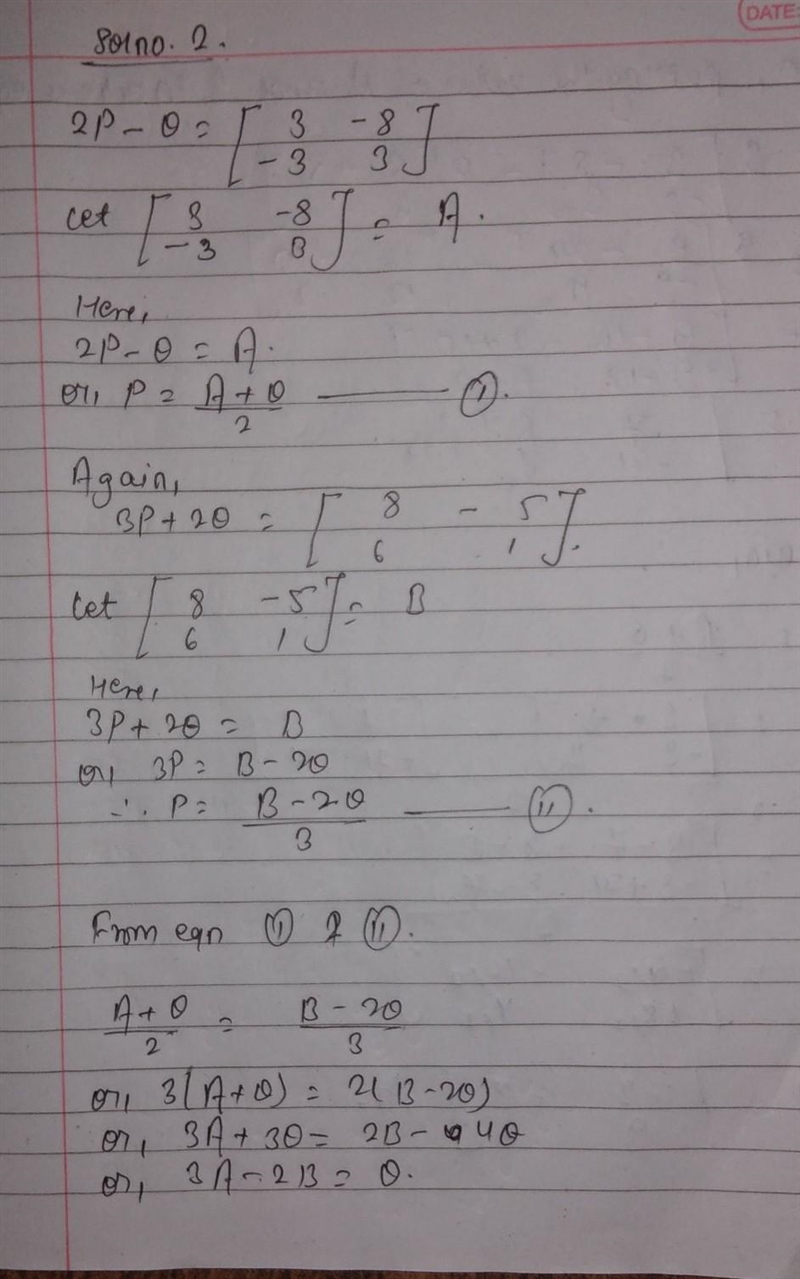 DATE:
Solno. 2.
2P - Q = [ 3 -8
-3 3 ]
Let [ 3 -8
-3 3 ] = A.
Here,
2P - Q = A.
or, P = A + Q / 2 —— (i).
Again,
3P + 2Q = [ 8 -5
6 1 ].
Let [ 8 -5
6 1 ] = B
Here,
3P + 2Q = B
or, 3P = B - 2Q
∴ P = B - 2Q / 3 —— (ii).
From eqn (i) & (ii).
A + Q / 2 = B - 2Q / 3
or, 3(A + Q) = 2(B - 2Q)
or, 3A + 3Q = 2B - 4Q
or, 3A - 2B = Q.